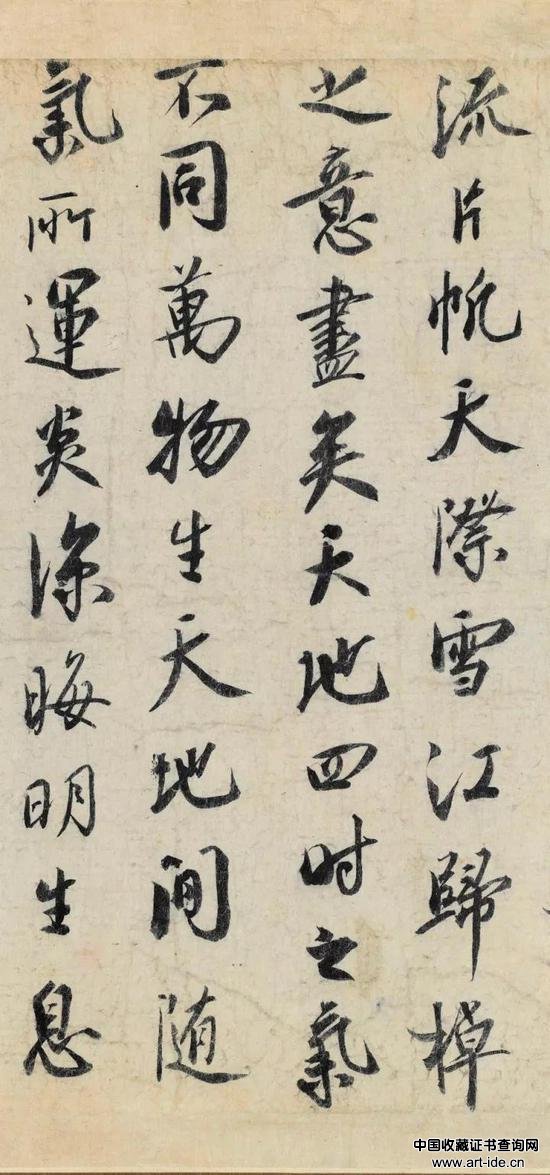 流片帆天際雪江歸棹
之意盡矣天地四时之氣
不同萬物生天地间随
氣所運炎涼晦明生息
中国收藏证书查询网
www.art-ide.cn